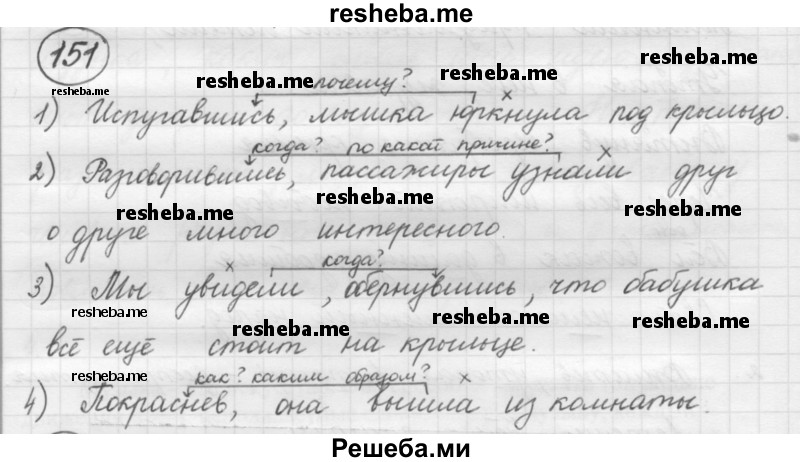 resheba.me
151
resheba.me
resheba.me почему? resheba.me
1) Испугавшись, мышка юркнула под крыльцо.
когда? по какой причине?
2) Разговорившись, пассажиры узнали друг
resheba.me resheba.me
о друге много интересного.
когда?
3) Мы увидели, обернувшись, что бабушка
resheba.me resheba.me resheba.me
всё ещё стоит на крыльце.
resheba.me как? каким образом? resheba.me
4) Покраснев, она вышла из комнаты.
Решеба.ми